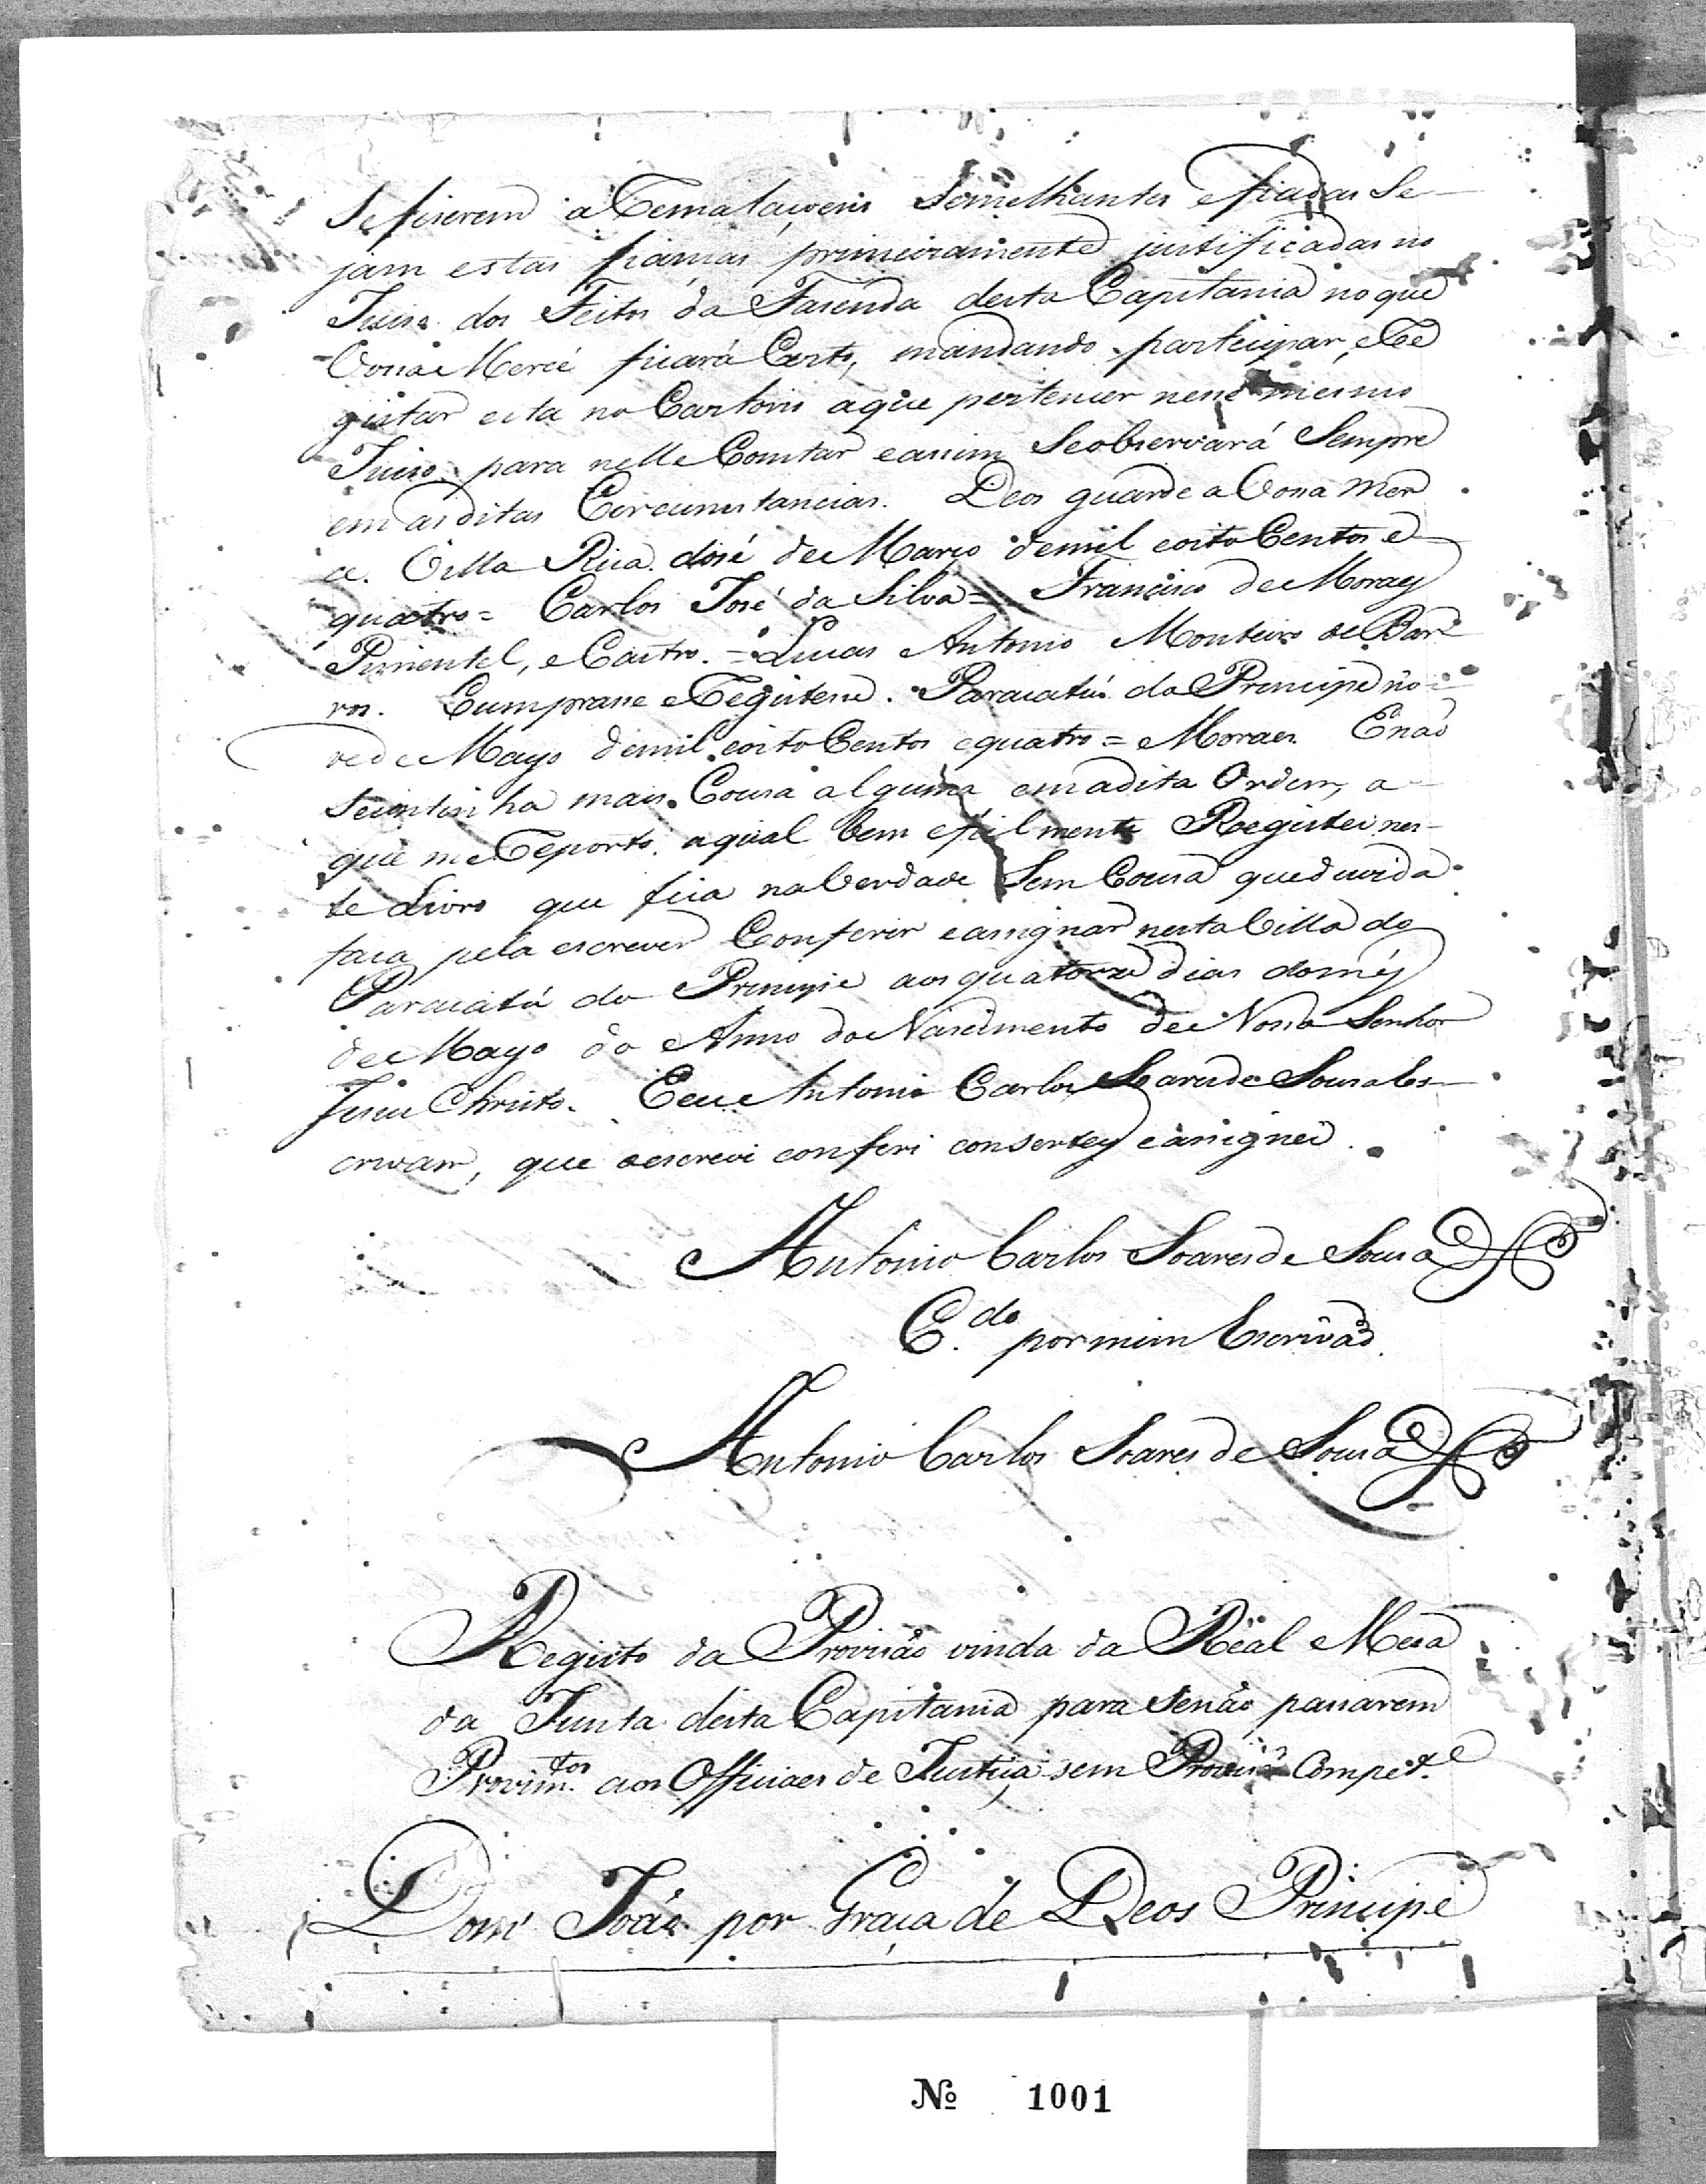 Se fiserem a Remataçoens Semelhantes e fiadas Se-
jam estas fianças primeiramente justificadas no
Juiso dos Feitos da Fasenda desta Capitania no que
Vossa Merce ficará Certo, mandando participar, e Re
gistar esta no Cartorio aque pertencer nesse mesmo
Juiso para nelle Constar eassim Seobservará Sempre
em as ditas Circunstancias. Deos guarde a Vossa Mer
ce. Villa Rica dose de Março demil eoito Centos e
quatro = Carlos José da Silva = Francisco de Moraes
Pimentel, e Castro. = Lucas Antonio Monteiro de Bar
ros. Cumprasse e Registesse. Paracatú do Principe no-
ve de Mayo demil eoito Centos equatro = Moraes. Enaõ
Secontinha mais Cousa alguma emadita Ordem, a
que me Reporto aqual bem efielmente Registei nes-
te Livro que fica naVerdade Sem Cousa queduvida
faça pela escrever Conferir eassignar nestaVilla do
Paracatú do Principe aos quatorze dias domes
de Mayo do Anno do Nascimento de Nosso Senhor
Jesu Christo. Eeu Antonio Carlos Soares de Sousa Es-
crivam, que aescrevi conferi consertey eassignei.
Antonio Carlos Soares de Sousa
C.do por mim Escrivaõ.
Antonio Carlos Soares de Sousa
Registo da Provisão vinda da Real Mesa
da Junta desta Capitania para Senão passarem
Provim.tos aos Officiaes de Justiça sem Provisão Compet.e
Dom João por Graça de Deos Principe
Nº 1001